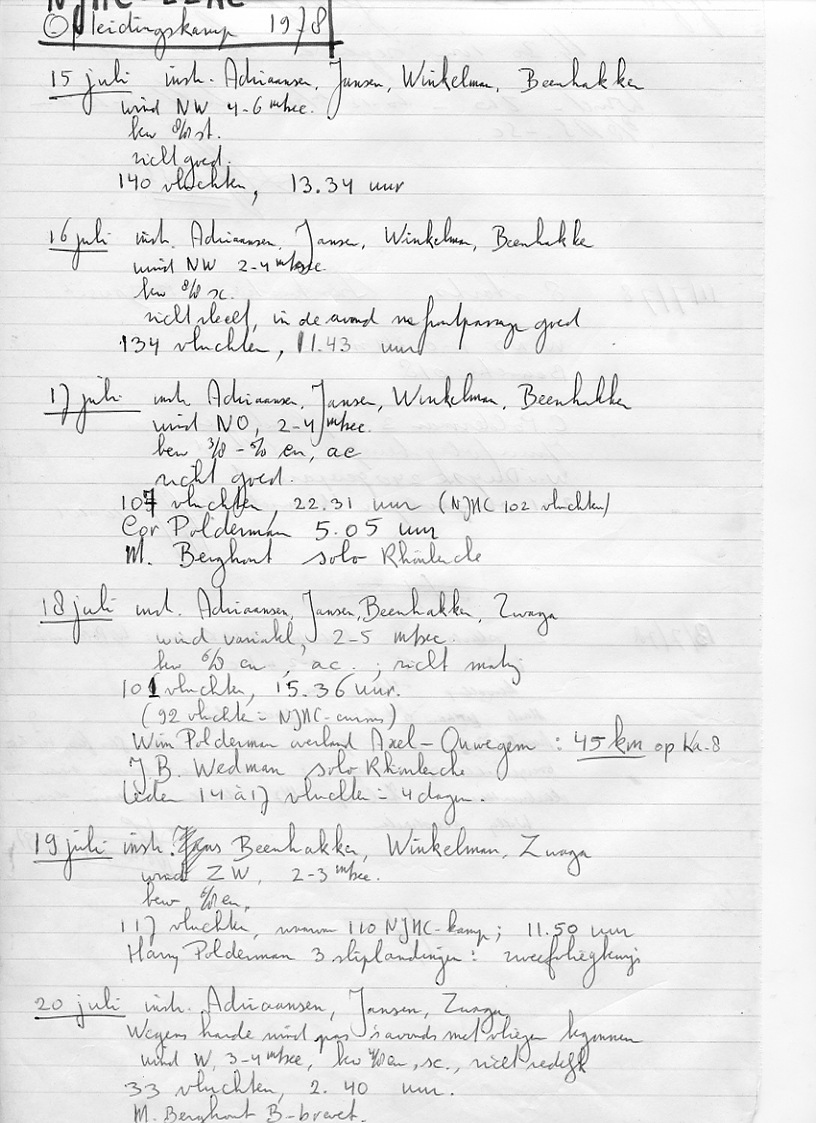 NJHC-EZAC
Opleidingskamp 1978
15 juli instr. Adriaansen, Jansen, Winkelman, Beenhakker
wind NW 4-6 m/sec.
bew 8/8 st.
zicht goed.
140 vluchten, 13.34 uur
16 juli instr. Adriaansen, Jansen, Winkelman, Beenhakke
wind NW 2-4 m/sec.
bew 8/8 sc.
zicht slecht, in de avond na frontpassage goed
134 vluchten, 11.43 uur
17 juli instr Adriaansen, Jansen, Winkelman, Beenhakker
wind NO, 2-4 m/sec.
bew 3/8 - 5/8 cu, ac
zicht goed.
107 vluchten, 22.31 uur (NJHC 102 vluchten)
Cor Polderman 5.05 uur
M. Berghout solo Rhönlerche
18 juli inst. Adriaansen, Jansen, Beenhakker, Zwaga
wind variabl, 2-5 m/sec.
bew 6/8 cu, ac. ; zicht matig
101 vluchten, 15.36 uur.
(92 vluchten = NJHC-cursus)
Wim Polderman overland Axel - Ourwegem : 45 km op Ka-8
J.B. Wedman solo Rhönlerche
Leden 14 à 17 vluchten = 4 dagen.
19 juli instr. Beenhakker, Winkelman, Zwaga
wind ZW, 2-3 m/sec.
bew 6/8 cu,
117 vluchten, waarvan 110 NJHC-kamp; 11.50 uur
Harry Polderman 3 sliplandingen : zweefvliegbewijs
20 juli instr. Adriaansen, Jansen, Zwaga
Wegens harde wind pas 's avonds met vliegen begonnen
wind W, 3-4 m/sec, bew cu, sc., zicht redelijk
33 vluchten, 2.40 uur.
M. Berghout B-brevet.